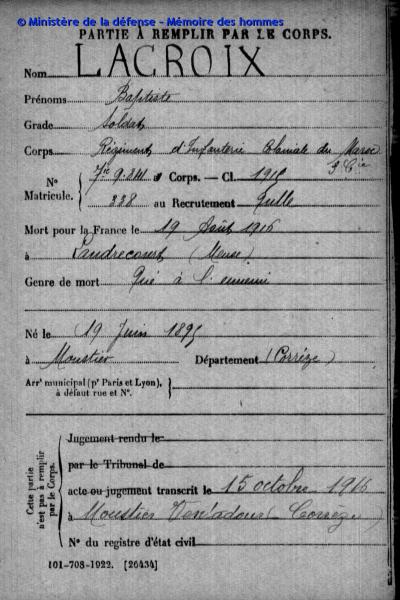 © Ministère de la défense - Mémoire des hommes
PARTIE À REMPLIR PAR LE CORPS.
Nom LACROIX
Prénoms Baptiste
Grade Soldat
Corps Régiment d'Infanterie Coloniale du Maroc
9e Cie
N° Matricule. 9.241 au Corps. — Cl. 1915
338 au Recrutement Tulle
Mort pour la France le 19 Août 1916
à (Meuse)
Genre de mort Tué à l'ennemi
Né le 19 Juin 1895
à Moustier Département (Corrèze)
Arrt municipal (pr Paris et Lyon),
à défaut rue et N°.
Cette partie
n'est pas à remplir
par le Corps.
Jugement rendu le
par le Tribunal de
acte ou jugement transcrit le 15 octobre 1916
à Moustier Ventadour (Corrèze)
N° du registre d'état civil
101-708-1922. [26434]